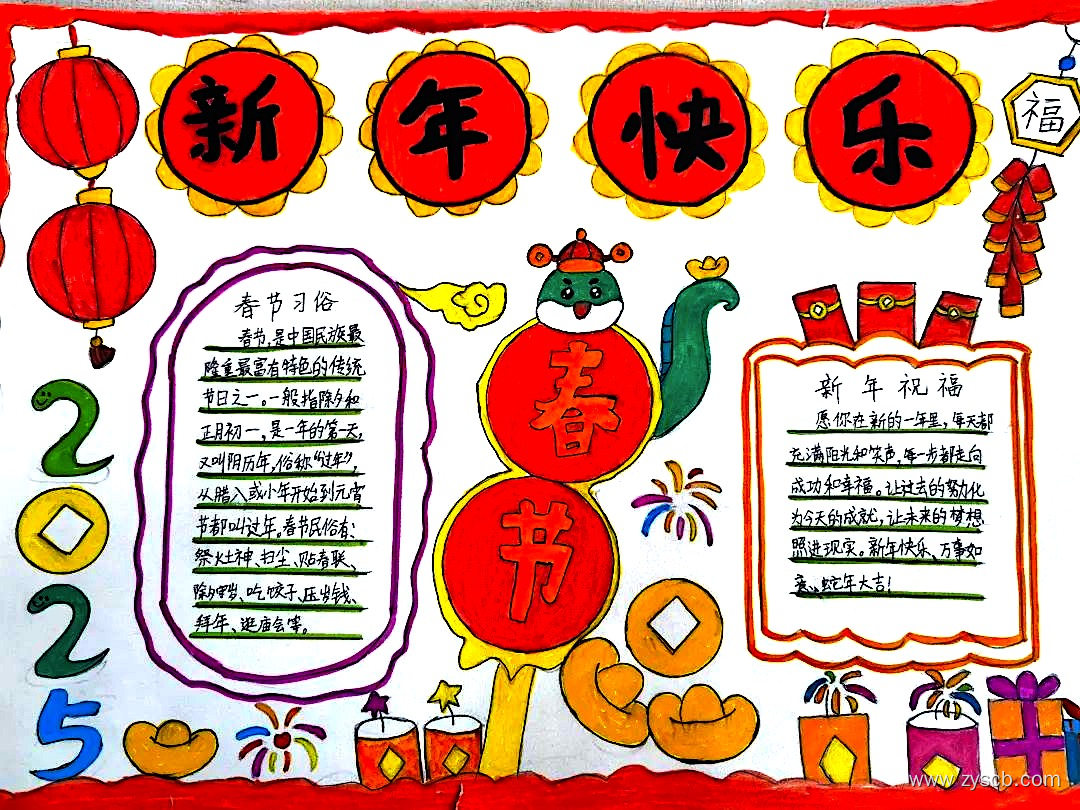 新年快乐
福
春节习俗
春节,是中国民族最
隆重最富有特色的传统
节日之一。一般指除夕和
正月初一,是一年的第一天,
又叫阴历年,俗称“过年”,
从腊八或小年开始到元宵
节都叫过年。春节民俗有:
祭灶神、扫尘、贴春联、
除夕守岁、吃饺子、压岁钱、
拜年、逛庙会等。
春节
新年祝福
愿你在新的一年里,每天都
充满阳光和笑声,每一步都走向
成功和幸福。让过去的努力化
为今天的成就,让未来的梦想
照进现实。新年快乐、万事如
意、蛇年大吉!
2025
www.zyscb.com